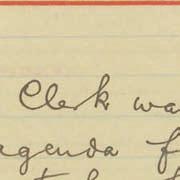 Clerk wa
agenda f